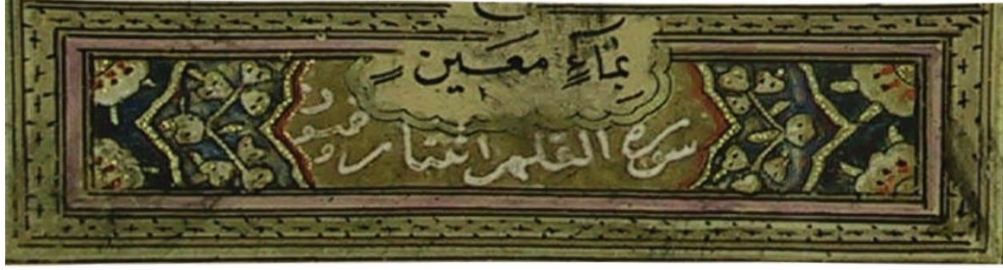 بِمَاءٍ مَعِينٍ
سورة القلم اثنتان وخمسون